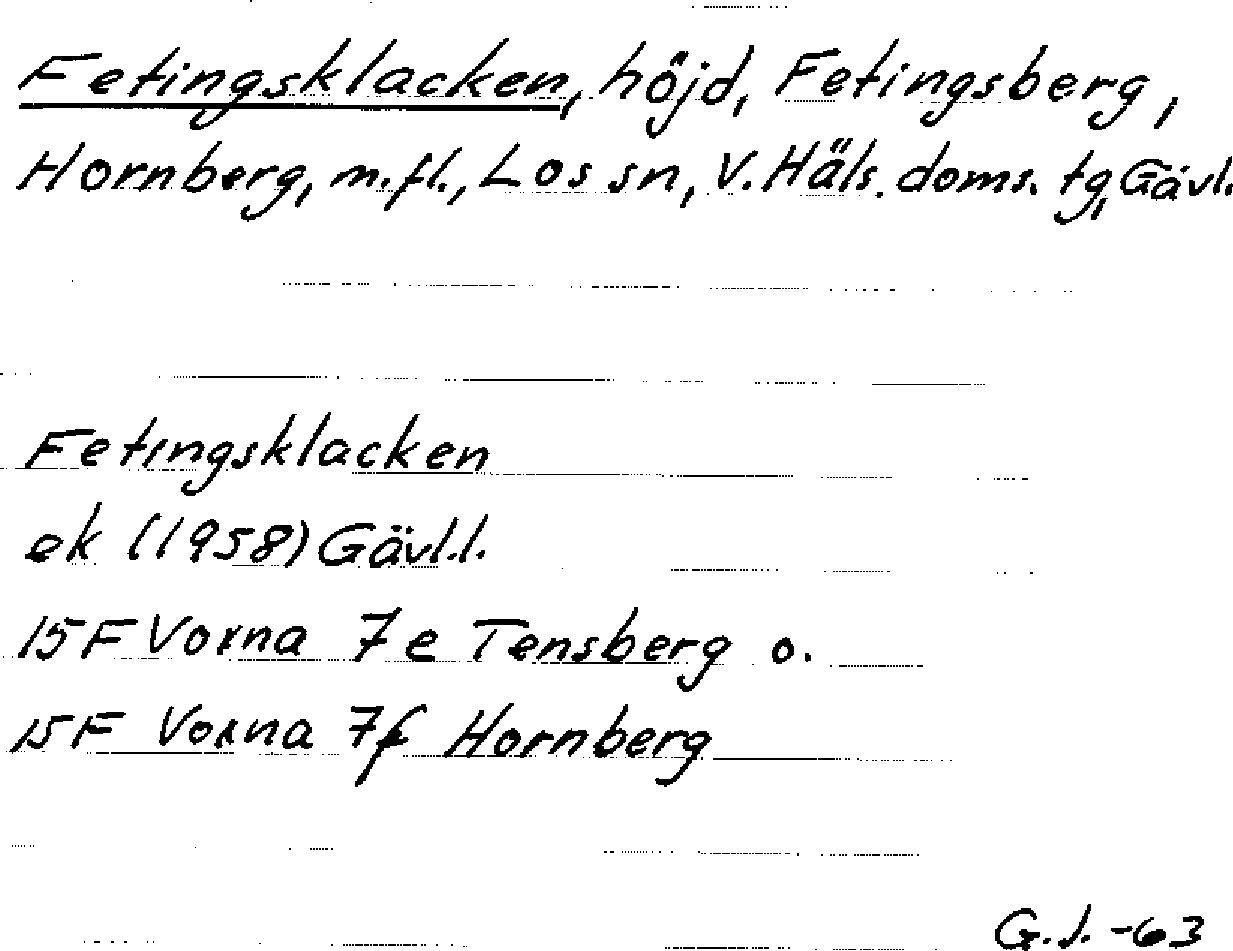 Fetingsklacken, höjd, Fetingsberg,
Hornberg, m.fl., Los sn, V. Häls. doms. tg, Gävl.
Fetingsklacken
ek (1958) Gävl.l.
15F Voxna 7e Tensberg o.
15F Voxna 7f Hornberg
G.J. -63